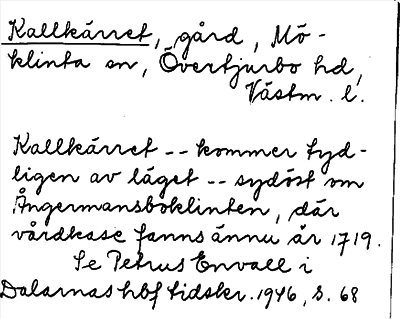 Kallkärret, gård, Mö-
klinta sn, Övertjurbo hd,
Västm. l.
Kallkärret -- kommer tyd-
ligen av läget -- sydöst om
Ångermansboklinten, där
vårdkase fanns ännu år 1719.
Se Petrus Envall i
Dalarnas hbf tidskr. 1946, s. 68